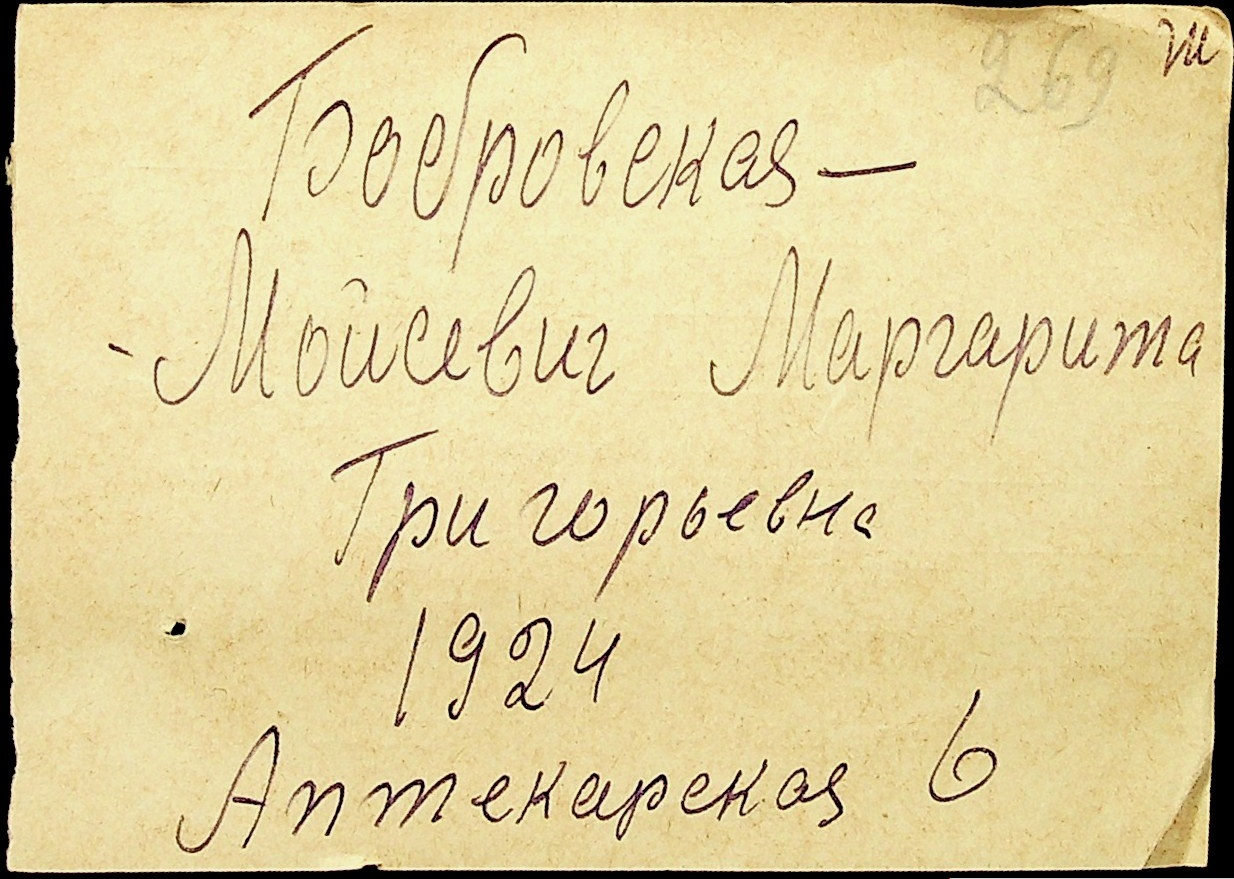 269
Бобровская —
- Мойсевич Маргарита
Григорьевна
1924
Аптекарская 6